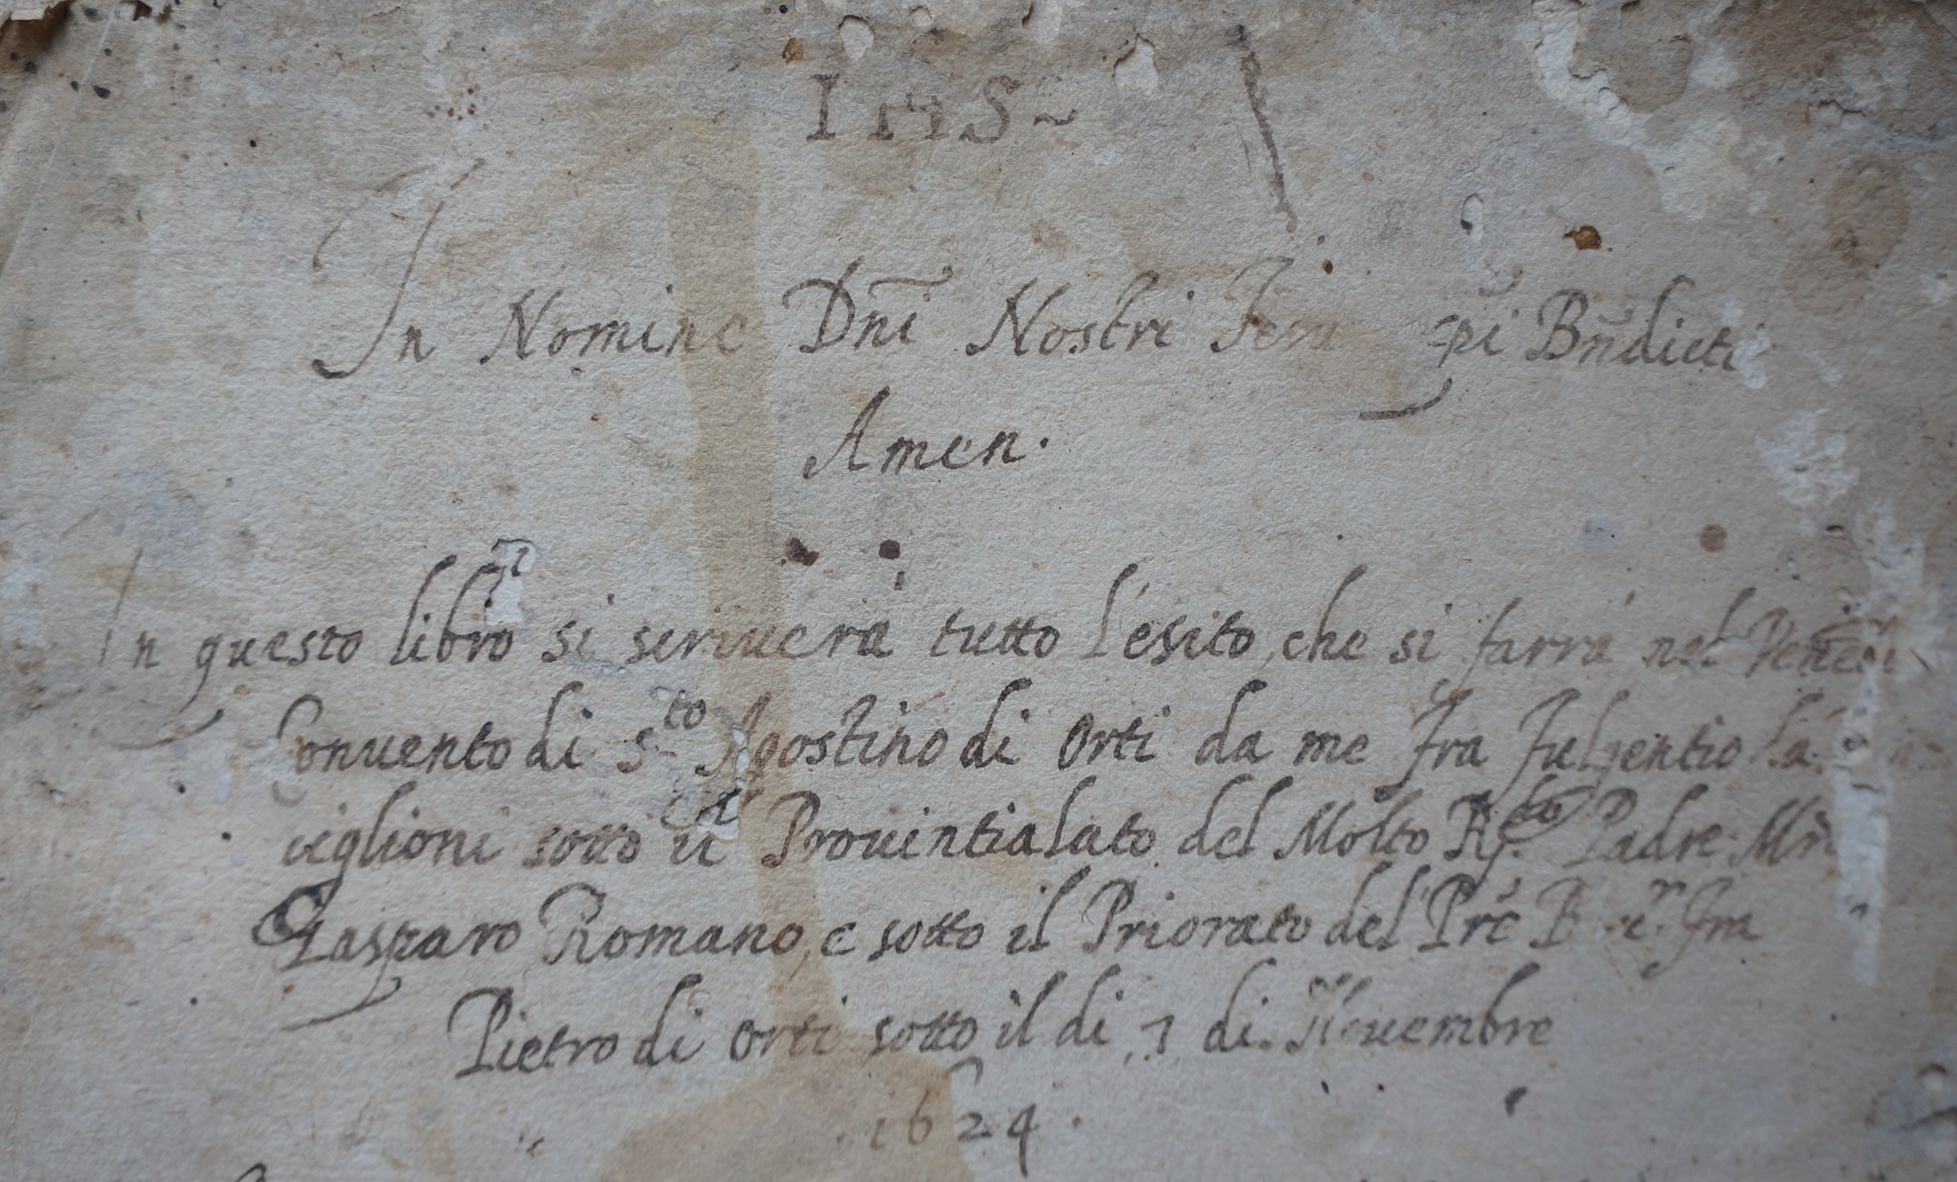 IHS~
In Nomine Dñi Nostri Jesu xpi Bñdicti
Amen.
In questo libro si scriuerà tutto l'esito, che si farrà nel Vene
Conuento di S.to Agostino di Orti da me fra fulgentio
uiglioni sotto il Prouintialato del Molto R.do Padre Mrõ
Gasparo Romano, e sotto il Priorato del Prẽ fra
Pietro di Orti sotto il di 1 di Nouembre
1624.